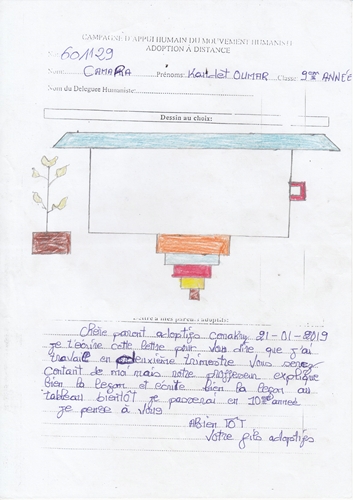 CAMPAGNE D'APPUI HUMAIN DU MOUVEMENT HUMANISTE
ADOPTION À DISTANCE
N° 601129
Nom: CAMARA Prénoms: Kalidet OUMAR Classe: 9em ANNÉE
Nom du Délégué Humaniste:
Dessin au choix:
Lettre à mes parents adoptifs:
Chère parent adoptifs Conakry 21-01-2019
je t'écrire cette lettre pour vous dire que j'ai
travail en deuxième trimestre vous serez
contant de ma mais notre proffesseur explique
bien la leçon et écrite bien la leçon au
tableau bientôt je passerai en 10em année
je pense à vous
ABien TÔT
votre fils adoptifs